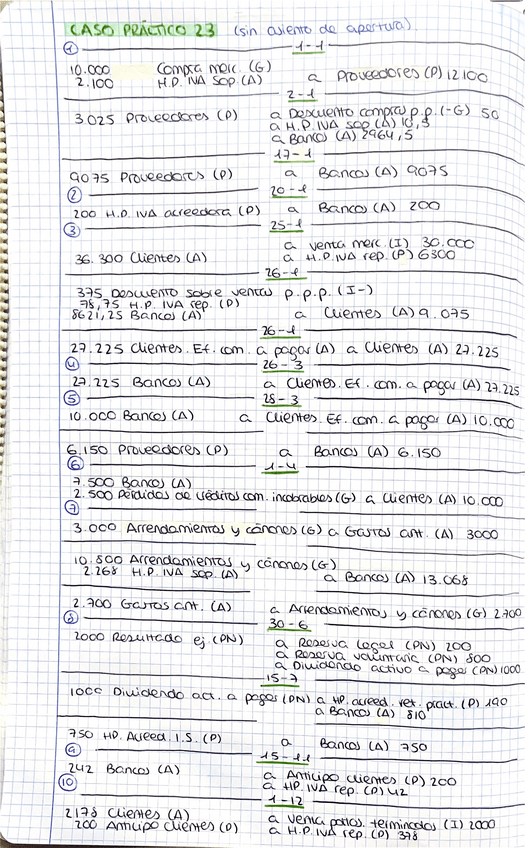 CASO PRÁCTICO 23 (sin asiento de apertura)
① 1-1
10.000 Compra merc. (G)
2.100 H.P. IVA SOP. (A) a Proveedores (P) 12100
2-1
3025 Proveedores (P) a Descuento compras p.p. (-G) 50
a H.P. IVA SOP (A) 10,5
a Bancos (A) 2964,5
17-1
9075 Proveedores (P) a Bancos (A) 9075
② 20-1
200 H.P. IVA acreedora (P) a Bancos (A) 200
③ 25-1
a Venta merc. (I) 30.000
36.300 Clientes (A) a H.P. IVA rep. (P) 6300
26-1
375 Descuento sobre ventas p.p.p. (I-)
78,75 H.P. IVA rep. (P)
8621,25 Bancos (A) a Clientes (A) 9.075
26-1
27.225 Clientes. Ef. com. a pagar (A) a Clientes (A) 27.225
④ 26-3
27.225 Bancos (A) a Clientes. Ef. com. a pagar (A) 27.225
⑤ 28-3
10.000 Bancos (A) a Clientes. Ef. com. a pagar (A) 10.000
6.150 Proveedores (P) a Bancos (A) 6.150
⑥ 1-4
7.500 Bancos (A)
2.500 Pérdidas de créditos com. incobrables (G) a Clientes (A) 10.000
⑦
3.000 Arrendamientos y cánones (G) a Gastos ant. (A) 3000
10.800 Arrendamientos y cánones (G)
2.268 H.P. IVA SOP. (A) a Bancos (A) 13.068
2.700 Gastos ant. (A) a Arrendamientos y cánones (G) 2.700
⑧ 30-6
2000 Resultado ej (PN) a Reserva legal (PN) 200
a Reserva voluntaria (PN) 800
a Dividendo activo a pagar (PN) 1000
15-7
1000 Dividendo act. a pagar (PN) a HP. acreed. ret. pract. (P) 190
a Bancos (A) 810
750 HP. Acreed. I.S. (P) a Bancos (A) 750
⑨ 15-11
242 Bancos (A) a Anticipo clientes (P) 200
a HP. IVA rep. (P) 42
⑩ 1-12
2178 Clientes (A) a Venta ptos. terminados (I) 2000
200 Anticipo clientes (P) a H.P. IVA rep. (P) 378